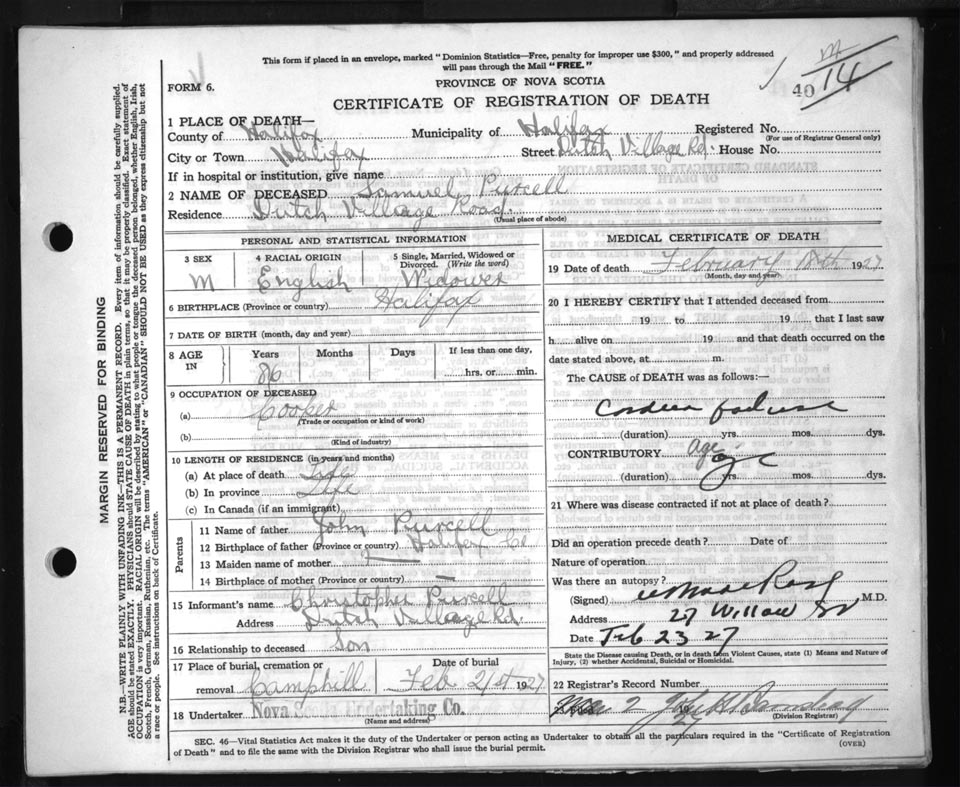 This form if placed in an envelope, marked "Dominion Statistics—Free, penalty for improper use $300," and properly addressed
will pass through the Mail "FREE."
FORM 6.
PROVINCE OF NOVA SCOTIA
M
40 14
CERTIFICATE OF REGISTRATION OF DEATH
1 PLACE OF DEATH—
County of Halifax Municipality of Halifax Registered No.
(For use of Registrar General only)
City or Town Halifax Street Dutch Village Rd. House No.
If in hospital or institution, give name
2 NAME OF DECEASED Samuel Purcell
Residence Dutch Village Road.
(Usual place of abode)
PERSONAL AND STATISTICAL INFORMATION
3 SEX 4 RACIAL ORIGIN 5 Single, Married, Widowed or Divorced. (Write the word)
M English Widower
6 BIRTHPLACE (Province or country) Halifax
7 DATE OF BIRTH (month, day and year)
8 AGE IN Years Months Days If less than one day,
86 hrs. or min.
9 OCCUPATION OF DECEASED
(a) Cooper
(Trade or occupation or kind of work)
(b)
(Kind of industry)
10 LENGTH OF RESIDENCE (in years and months)
(a) At place of death Life
(b) In province Life
(c) In Canada (if an immigrant)
Parents
11 Name of father John Purcell
12 Birthplace of father (Province or country) Halifax Co
13 Maiden name of mother —
14 Birthplace of mother (Province or country) —
15 Informant's name Christopher Purcell
Address Dutch Village Rd.
16 Relationship to deceased Son
17 Place of burial, cremation or removal Camphill
Date of burial
Feb 21st 1927
18 Undertaker Nova Scotia Undertaking Co.
(Name and address)
MEDICAL CERTIFICATE OF DEATH
19 Date of death February 18th 1927
(Month, day and year)
20 I HEREBY CERTIFY that I attended deceased from
19 to 19 that I last saw
h alive on 19 and that death occurred on the
date stated above, at m.
The CAUSE of DEATH was as follows:—
failure
(duration) yrs. mos. dys.
CONTRIBUTORY Age
(duration) yrs. mos. dys.
21 Where was disease contracted if not at place of death?
Did an operation precede death? Date of
Nature of operation
Was there an autopsy?
(Signed) M.D.
Address 27 Willow St
Date Feb 23 27
State the Disease causing Death, or in death from Violent Causes, state (1) Means and Nature of
Injury, (2) whether Accidental, Suicidal or Homicidal.
22 Registrar's Record Number
(Division Registrar)
SEC. 46—Vital Statistics Act makes it the duty of the Undertaker or person acting as Undertaker to obtain all the particulars required in the "Certificate of Registration
of Death" and to file the same with the Division Registrar who shall issue the burial permit.
(OVER)
MARGIN RESERVED FOR BINDING
N.B.—WRITE PLAINLY WITH UNFADING INK—THIS IS A PERMANENT RECORD. Every item of information should be carefully supplied.
AGE should be stated EXACTLY. PHYSICIANS should STATE CAUSE OF DEATH in plain terms, so that it may be properly classified. Exact statement of
OCCUPATION is very important. RACIAL ORIGIN will be described by stating to what people or tongue the deceased person belonged, whether English, Irish,
Scotch, French, German, Russian, Ruthenian, etc. The terms "AMERICAN" or "CANADIAN" SHOULD NOT BE USED as they express citizenship but not
a race or people. See instructions on back of Certificate.